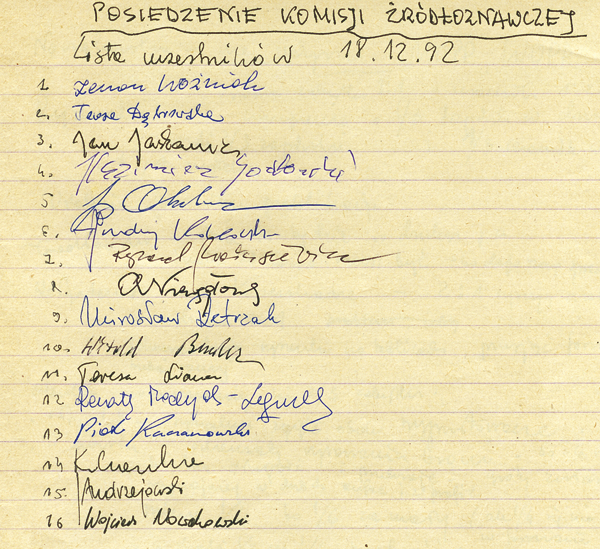 POSIEDZENIE KOMISJI ŹRÓDŁOZNAWCZEJ
Lista uczestników 18.12.92
1. Zenon Woźniak
2. Teresa Dąbrowska
3. Jan
4. Kazimierz Godłowski
5
6. Andrzej
7.
8. A Niewęgłowski
9. Mirosław Pietrzak
10. Witold
11. Teresa Liana
12 Renata Madyda-Legutko
13 Piotr Kaczanowski
14 K.
15. Andrzejowski
16 Wojciech Nowakowski